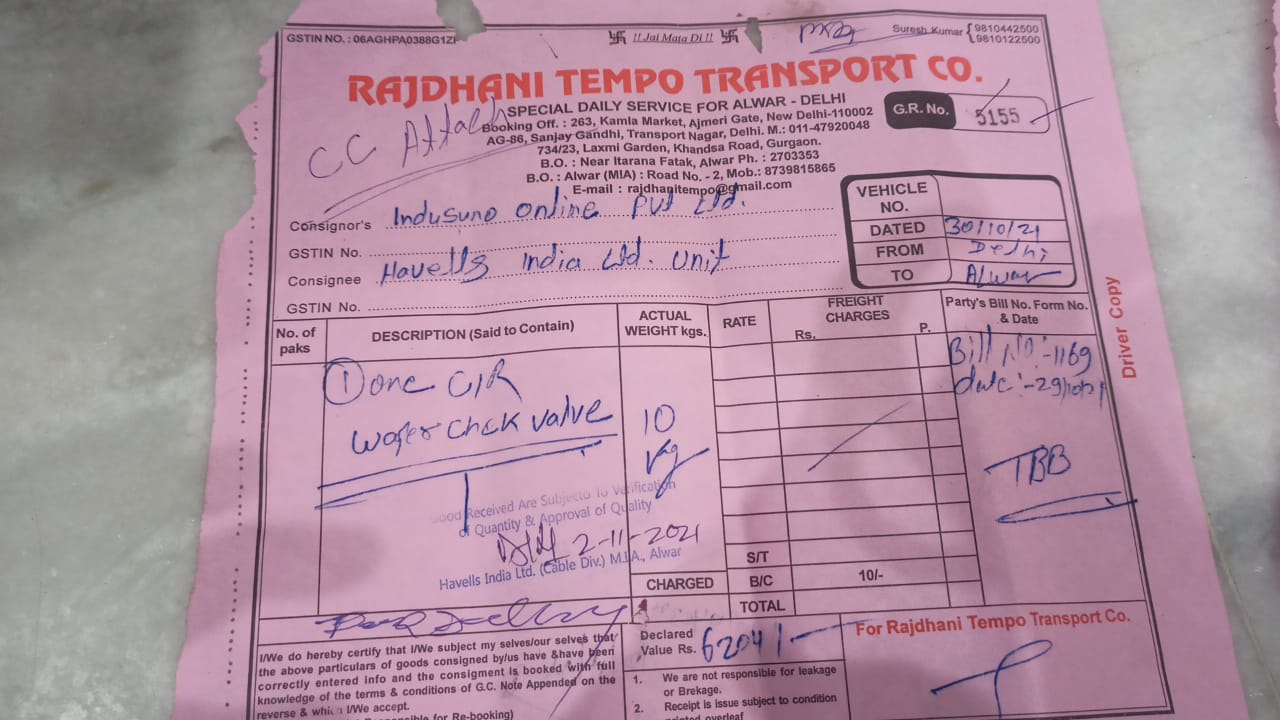 GSTIN NO. : 06AGHPA0388G1ZP
卐 !! Jai Mata Di !! 卐
Suresh Kumar { 9810442500
9810122500
RAJDHANI TEMPO TRANSPORT CO.
CC Attach
SPECIAL DAILY SERVICE FOR ALWAR - DELHI
Booking Off. : 263, Kamla Market, Ajmeri Gate, New Delhi-110002
AG-86, Sanjay Gandhi, Transport Nagar, Delhi. M.: 011-47920048
734/23, Laxmi Garden, Khandsa Road, Gurgaon.
B.O. : Near Itarana Fatak, Alwar Ph. : 2703353
B.O. : Alwar (MIA) : Road No. - 2, Mob.: 8739815865
E-mail : rajdhanitempo@gmail.com
G.R. No. 5155
Consignor's Indusuno online Pvt Ltd.
GSTIN No.
Consignee Havells India Ltd. Unit
GSTIN No.
VEHICLE NO.
DATED 30/10/21
FROM Delhi
TO Alwar
No. of paks
DESCRIPTION (Said to Contain)
ACTUAL WEIGHT kgs.
RATE
FREIGHT CHARGES
Rs. P.
Party's Bill No. Form No. & Date
① one C/R
wafer chck valve
10
kg
Bill No:-1169
date:-29/10/21
TBB
Good Received Are Subjecto To Verification
of Quantity & Approval of Quality
2-11-2021
Havells India Ltd. (Cable Div.) M.I.A., Alwar
CHARGED
S/T
B/C 10/-
TOTAL
Driver Copy
I/We do hereby certify that I/We subject my selves/our selves that
the above particulars of goods consigned by/us have &have been
correctly entered info and the consignment is booked with full
knowledge of the terms & conditions of G.C. Note Appended on the
reverse & which I/We accept.
for Re-booking)
Declared
Value Rs. 62041/-
1. We are not responsible for leakage
or Brekage.
2. Receipt is issue subject to condition
printed overleaf
For Rajdhani Tempo Transport Co.